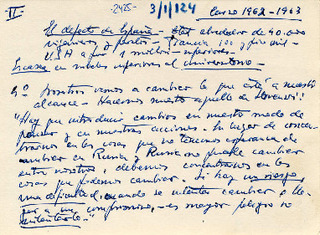 II
-245-
3/1/124
Curso 1962-1963
El defecto de España - alrededor de 40.000
ingenieros y peritos - Francia 100 y pico mil -
USA a un millón - superiores.
Escasez en niveles superiores al universitario -
5º Nosotros vamos a cambiar lo que esté a nuestro
alcance - Hacemos nuestro aquello de Stevenson:
"Hay que introducir cambios en nuestro modo de
pensar y en nuestras acciones. En lugar de concen-
trarnos en las cosas que no tenemos esperanza de
cambiar en Rusia y Rusia no puede cambiar
entre nosotros, debemos concentrarnos en las
cosas que podemos cambiar. Si hay un riesgo,
una dificultad, cuando se intenta cambiar o lle-
gar a un compromiso, es mayor peligro no
intentarlo".